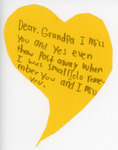 Dear. Grandpa I miss
you and yes even
thow post away when
I was small I
member you and I miss
you.